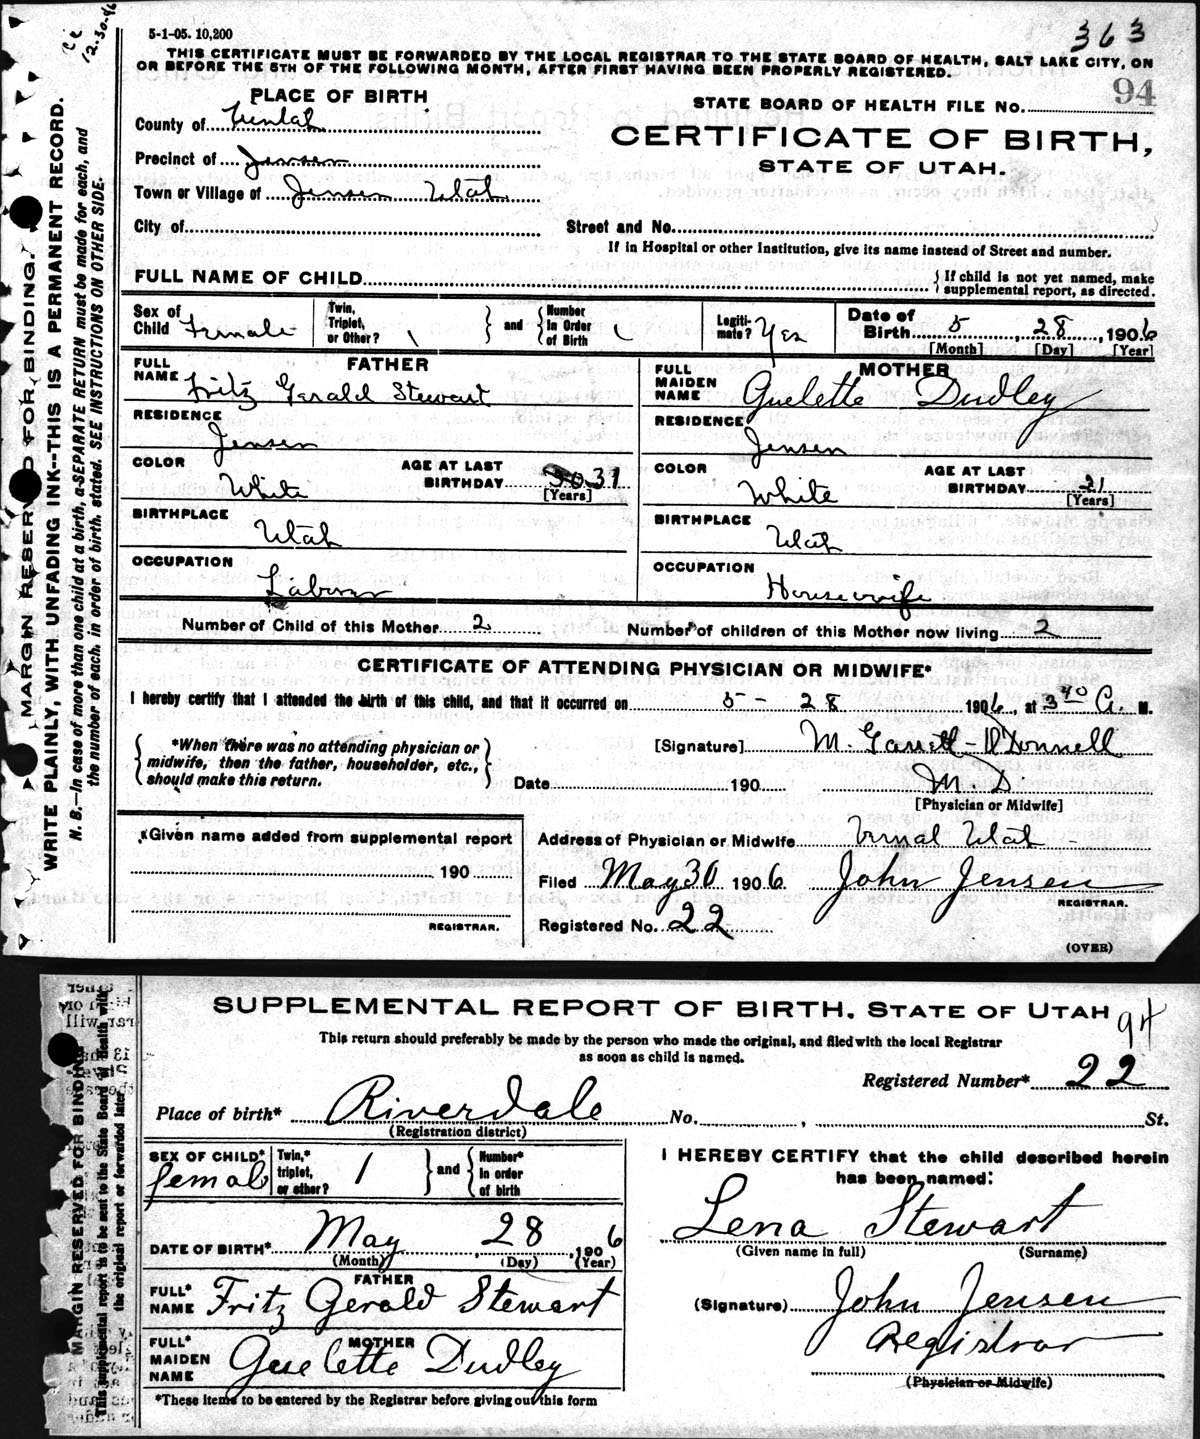 363
5-1-05. 10,200
THIS CERTIFICATE MUST BE FORWARDED BY THE LOCAL REGISTRAR TO THE STATE BOARD OF HEALTH, SALT LAKE CITY, ON
OR BEFORE THE 5TH OF THE FOLLOWING MONTH, AFTER FIRST HAVING BEEN PROPERLY REGISTERED.
12.30.46
MARGIN RESERVED FOR BINDING.
WRITE PLAINLY, WITH UNFADING INK--THIS IS A PERMANENT RECORD.
N. B.—In case of more than one child at a birth, a SEPARATE RETURN must be made for each, and
the number of each, in order of birth, stated. SEE INSTRUCTIONS ON OTHER SIDE.
PLACE OF BIRTH
STATE BOARD OF HEALTH FILE NO. 94
County of Uintah
CERTIFICATE OF BIRTH,
STATE OF UTAH.
Precinct of Jensen
Town or Village of Jensen Utah
City of
Street and No.
If in Hospital or other Institution, give its name instead of Street and number.
FULL NAME OF CHILD
{If child is not yet named, make
supplemental report, as directed.
Sex of Child Female
Twin, Triplet, or Other? 1 } and { Number in Order of Birth 1
Legitimate? Yes
Date of Birth 5 28, 1906
[Month] [Day] [Year]
FATHER
FULL NAME Fritz Gerald Stewart
RESIDENCE
Jensen
COLOR White
AGE AT LAST BIRTHDAY 30 31
[Years]
BIRTHPLACE
Utah
OCCUPATION
Laborer
MOTHER
FULL MAIDEN NAME Guelette Dudley
RESIDENCE
Jensen
COLOR White
AGE AT LAST BIRTHDAY 21
[Years]
BIRTHPLACE
Utah
OCCUPATION
Housewife
Number of Child of this Mother 2
Number of children of this Mother now living 2
CERTIFICATE OF ATTENDING PHYSICIAN OR MIDWIFE*
I hereby certify that I attended the birth of this child, and that it occurred on 5 - 28 1906, at 3 40 A. M.
{*When there was no attending physician or
midwife, then the father, householder, etc.,
should make this return.}
[Signature] M. Garrett-O'Donnell
Date 190 M. D.
[Physician or Midwife]
*Given name added from supplemental report
190
REGISTRAR.
Address of Physician or Midwife Vernal Utah
Filed May 30 1906. John Jensen
REGISTRAR.
Registered No. 22
(OVER)
MARGIN RESERVED FOR BINDING
This supplemental report is to be sent to the State Board of Health with
the original report or forwarded later
SUPPLEMENTAL REPORT OF BIRTH. STATE OF UTAH
94
This return should preferably be made by the person who made the original, and filed with the local Registrar
as soon as child is named.
Registered Number* 22
Place of birth* Riverdale No. , St.
(Registration district)
SEX OF CHILD* female
Twin,* triplet, or other? 1 } and { Number* in order of birth
DATE OF BIRTH* May 28, 1906
(Month) (Day) (Year)
FATHER
FULL* NAME Fritz Gerald Stewart
MOTHER
FULL* MAIDEN NAME Guelette Dudley
*These items to be entered by the Registrar before giving out this form
I HEREBY CERTIFY that the child described herein
has been named:
Lena Stewart
(Given name in full) (Surname)
(Signature) John Jensen
Registrar
(Physician or Midwife)